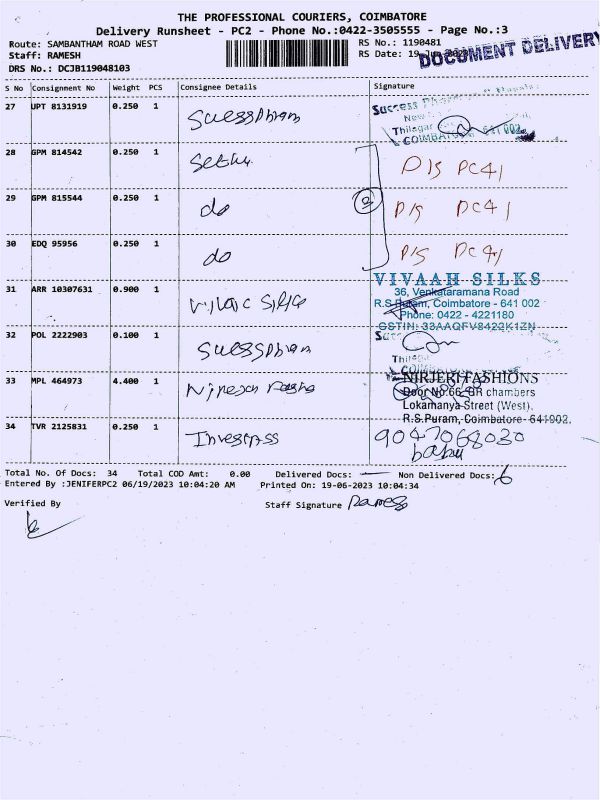 THE PROFESSIONAL COURIERS, COIMBATORE
Delivery Runsheet - PC2 - Phone No.:0422-3505555 - Page No.:3
Route: SAMBANTHAM ROAD WEST
RS No.: 1190481
Staff: RAMESH
RS Date: 19-Jun-2023
DOCUMENT DELIVERY
DRS No.: DCJB119048103
S No Consignment No Weight PCS Consignee Details Signature
27 UPT 8131919 0.250 1 Suesspharm
Success
New
Thilagar 641 002
COIMBATORE
28 GPM 814542 0.250 1 D/S PC41
29 GPM 815544 0.250 1 do D/S PC41
30 EDQ 95956 0.250 1 do D/S PC41
31 ARR 10307631 0.900 1
VIVAAH SILKS
36, Venkataramana Road
R.S.Puram, Coimbatore - 641 002
Phone: 0422 - 4221180
GSTIN: 33AAQFV8422K1ZN
32 POL 2222903 0.100 1 Suesspharm
33 MPL 464973 4.400 1
NIRJERI FASHIONS
Door No.66, GR chambers
Lokamanya Street (West),
R.S.Puram, Coimbatore - 641002.
34 TVR 2125831 0.250 1 9047068030
babu
Total No. Of Docs: 34 Total COD Amt: 0.00 Delivered Docs: Non Delivered Docs: 6
Entered By :JENIFERPC2 06/19/2023 10:04:20 AM Printed On: 19-06-2023 10:04:34
Verified By Staff Signature Ramesh